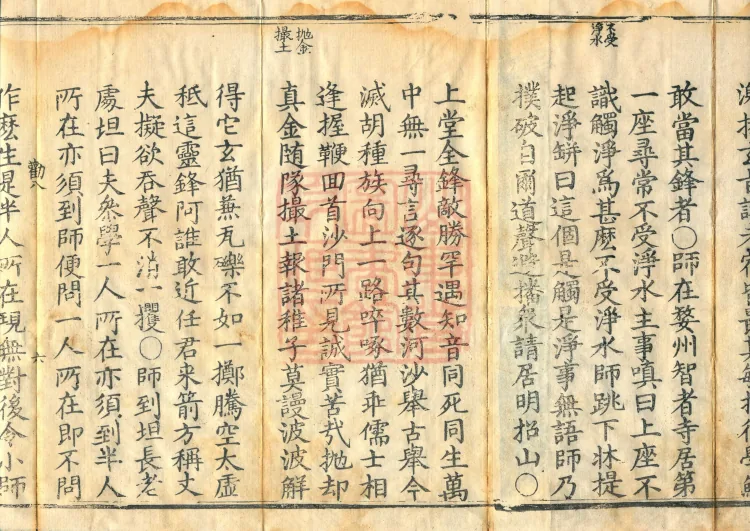 不受
淨水
敢當其鋒者〇師在婺州智者寺居第
一座尋常不受淨水主事嗔曰上座不
識觸淨爲甚麽不受淨水師跳下牀提
起淨缾曰這個是觸是淨事無語師乃
撲破自爾道聲遐播衆請居明招山〇
抛金
撮土
上堂全鋒敵勝罕遇知音同死同生萬
中無一尋言逐句其數河沙舉古舉今
滅胡種族向上一路啐啄猶乖儒士相
逢握鞭回首沙門所見誠實苦哉抛却
真金随隊撮土報諸稚子莫謾波波解
得它玄猶兼瓦礫不如一擲騰空太虛
秪這靈鋒阿誰敢近任君来箭方稱丈
夫擬欲吞聲不消一攫〇師到坦長老
處坦曰夫參學一人所在亦須到半人
所在亦須到師便問一人所在即不問
勸八
六
作麽生是半人所在坦無對後令小師